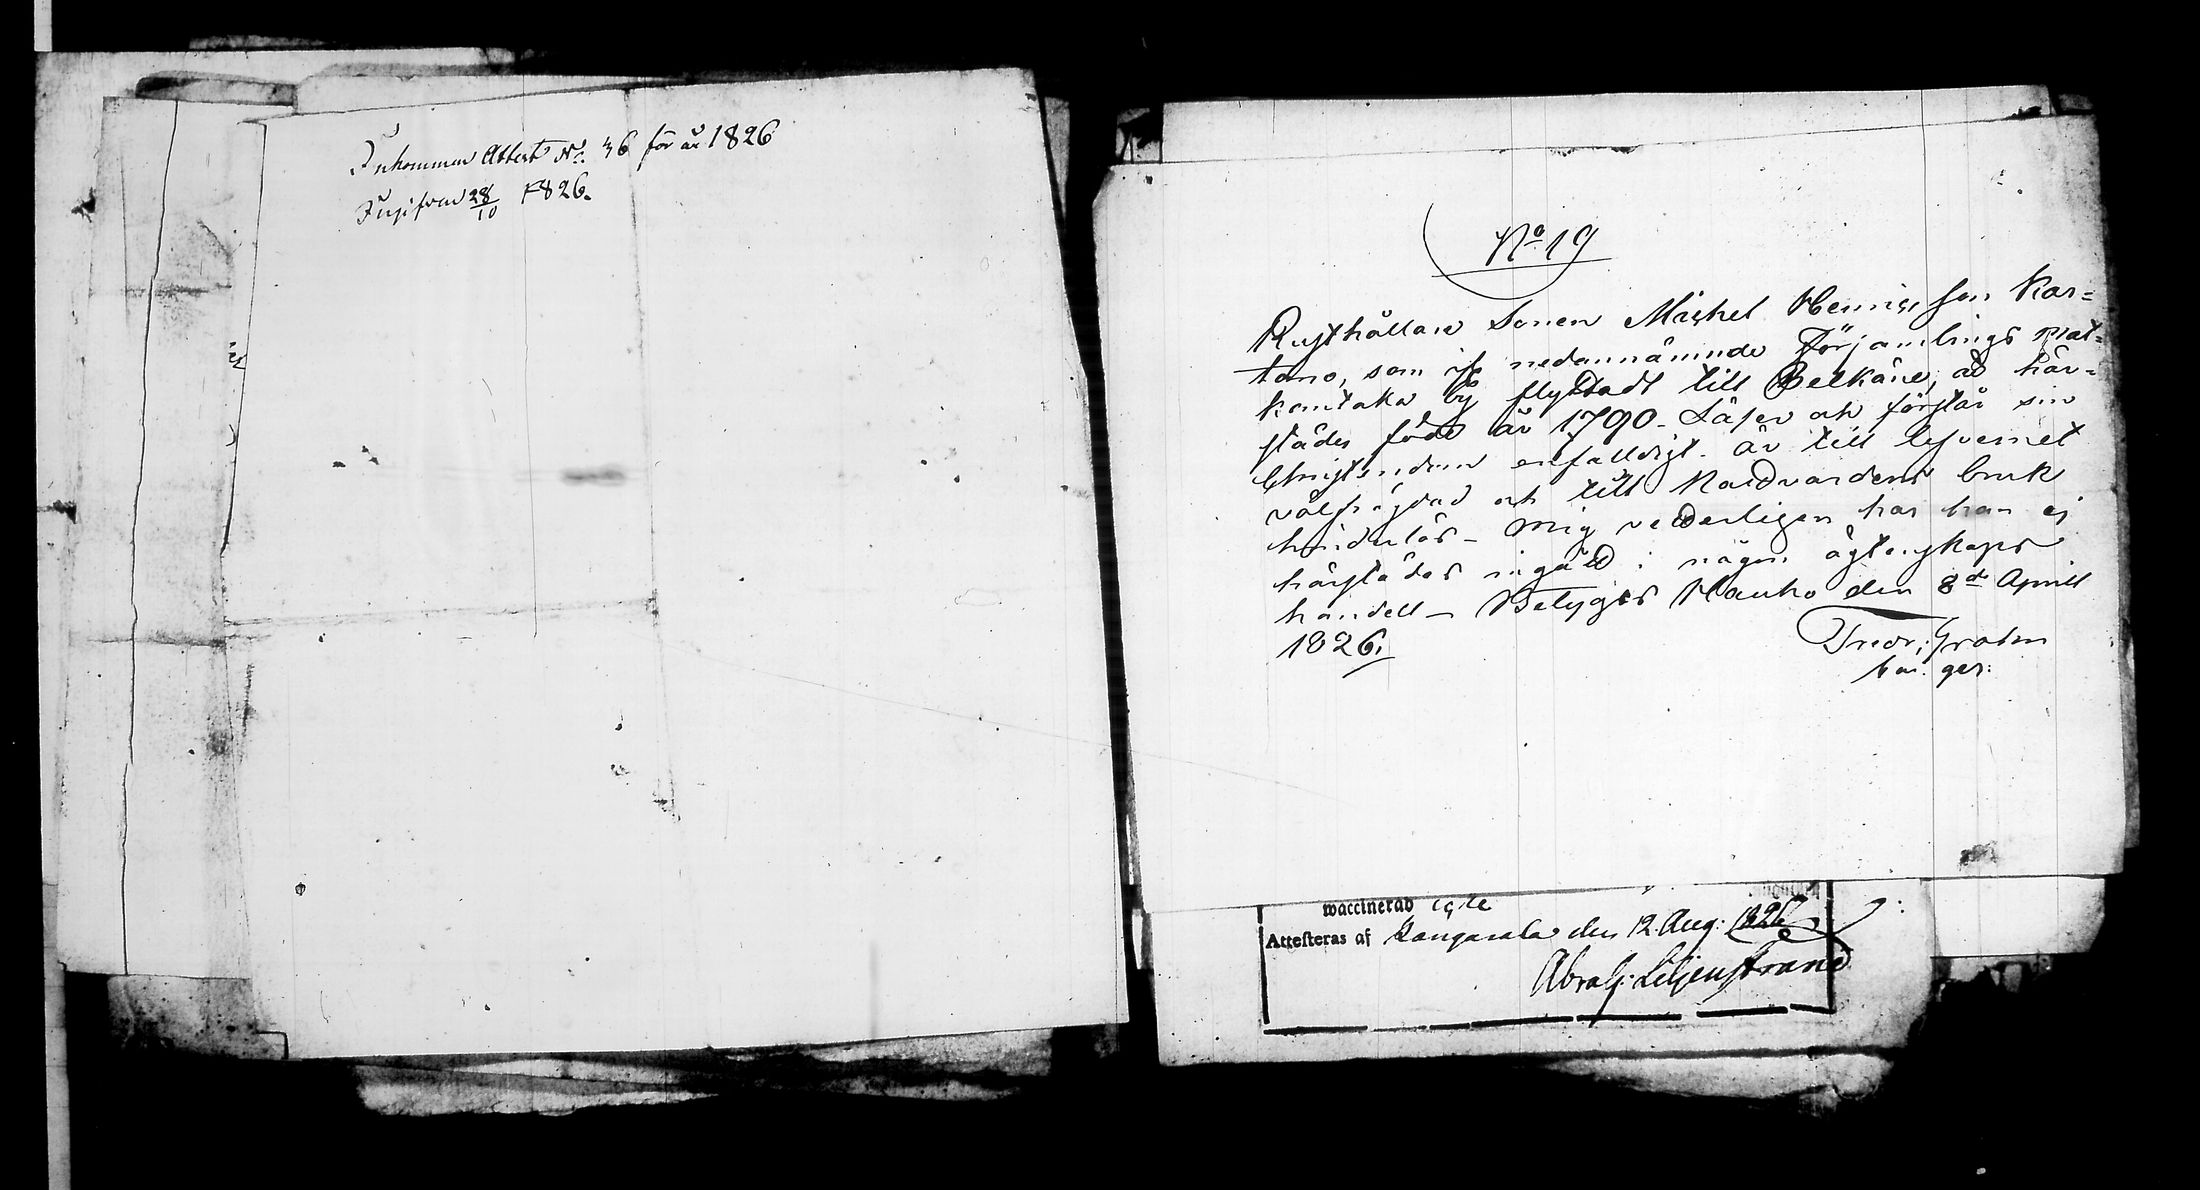 Inkommen Attest No. 36 för år 1826
28/10 1826.
No 19
Rusthållare Sonen Michel Henricsson Kar=
tano, som ifr nedannämnde Församlings Mat=
kontaka by flyttadt till Pelkäne, är här=
städes född år 1790 - Läser och förstår sin
Christendom enfalldigt. är till lefvernet
välfrägdad och till Nardvardens bruk
hinderlös - Mig veterligen har han ej
härstädes ingåtd i någon ägtenskaps
handell - Betygas Hauho den 8de Aprill
1826.
Fredr: Groten
vaccinerad icke
Attesteras af Kangasala den 12. Aug: 1826
Abrah: Liljenstrand